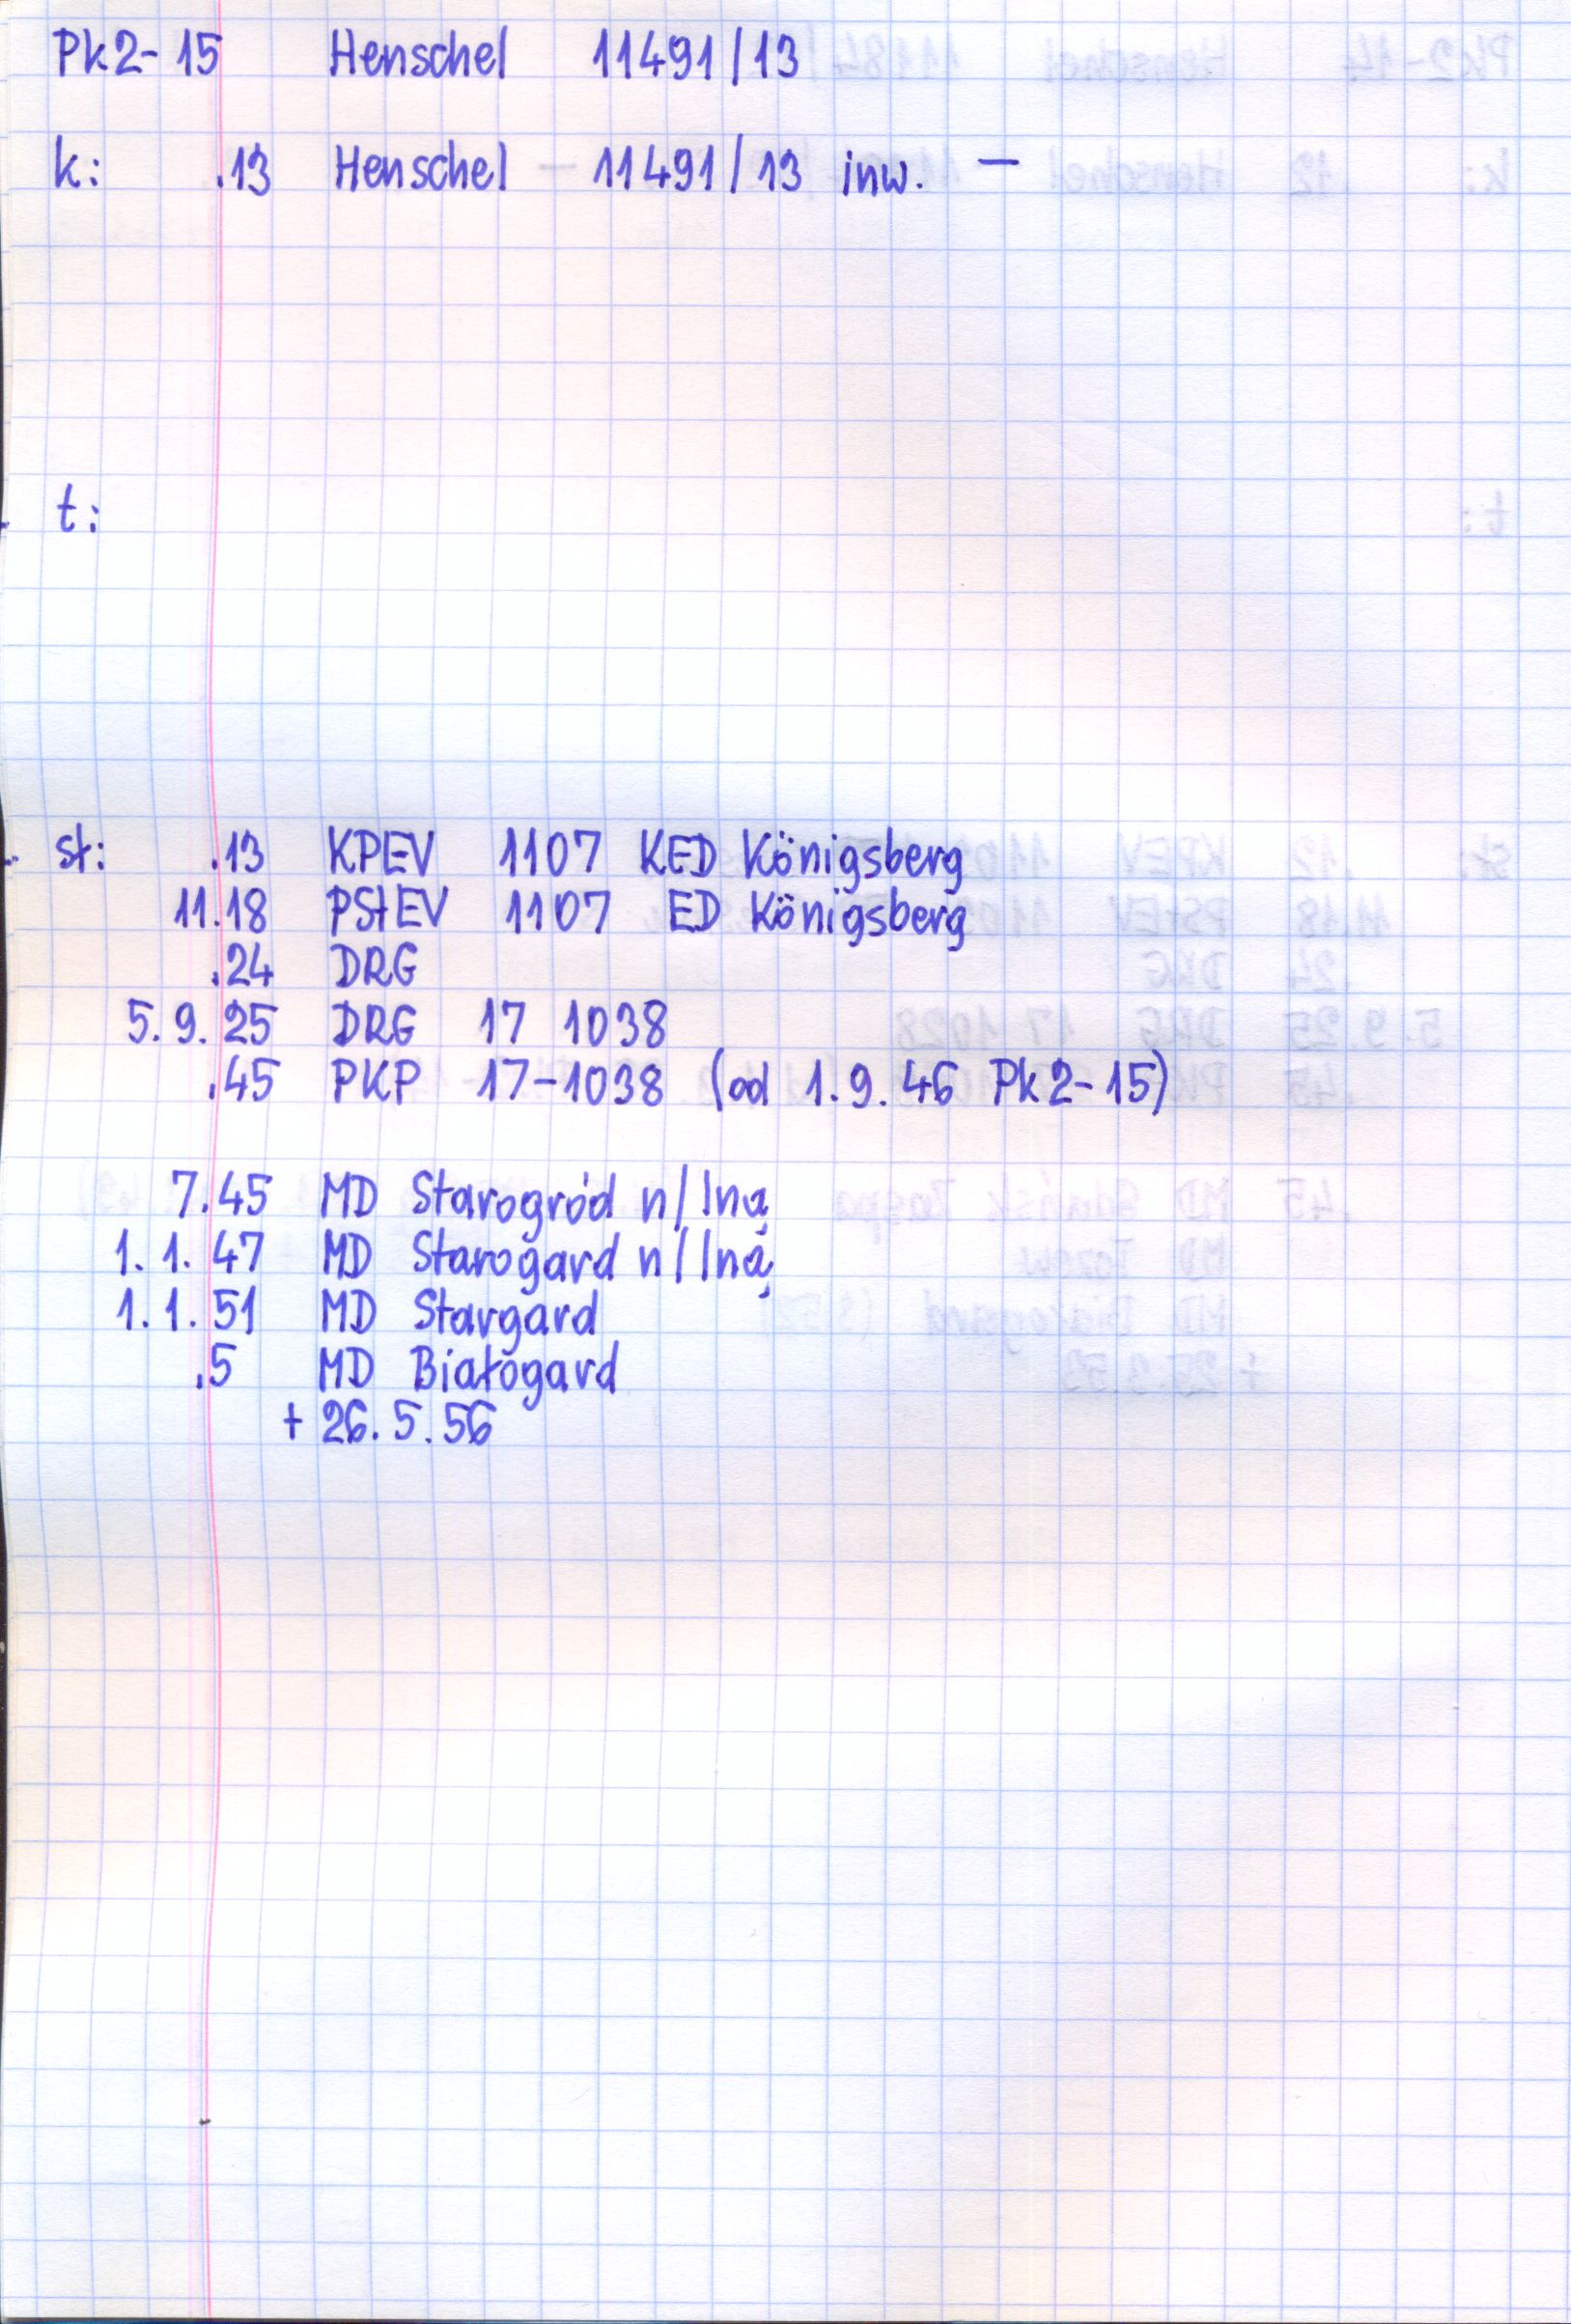 Pk2-15 Henschel 11491/13
k: .13 Henschel 11491/13 inw. —
t:
st: .13 KPEV 1107 KED Königsberg
11.18 PStEV 1107 ED Königsberg
.24 DRG
5.9.25 DRG 17 1038
.45 PKP 17-1038 (od 1.9.46 Pk2-15)
7.45 MD Starogród n/Iną
1.1.47 MD Starogard n/Iną
1.1.51 MD Stargard
.5 MD Białogard
+ 26.5.56